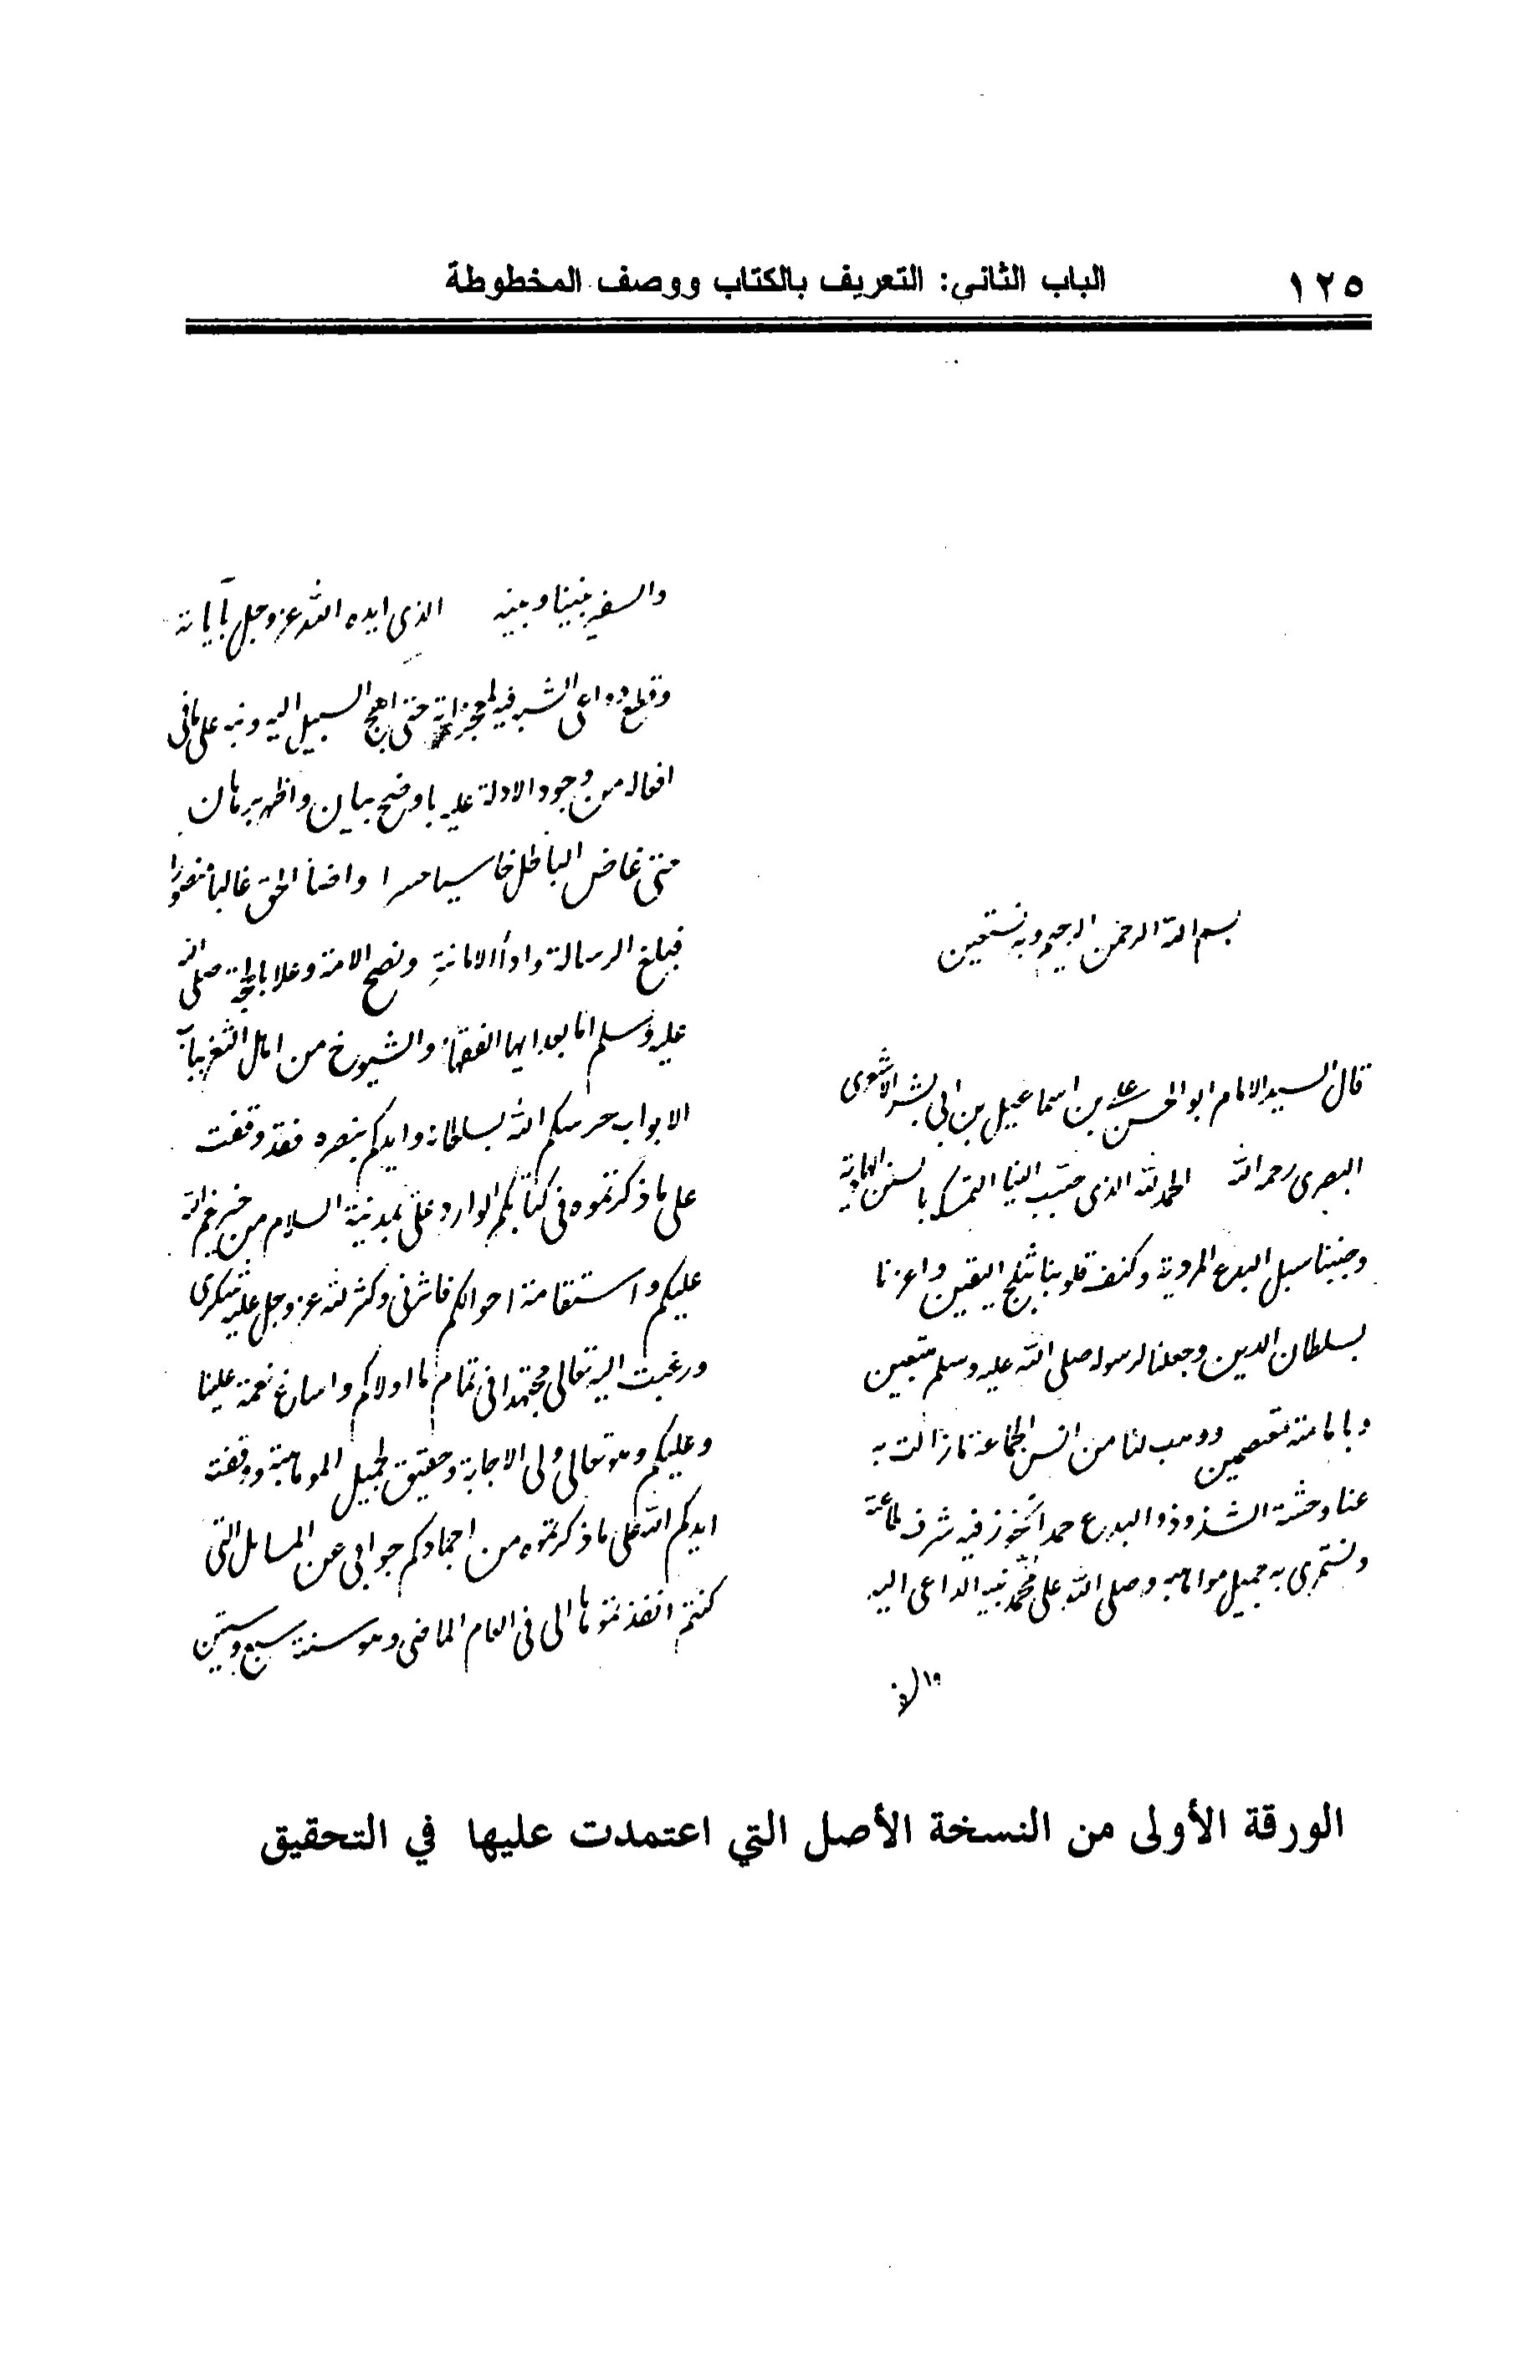 ١٢٥
الباب الثاني: التعريف بالكتاب ووصف المخطوطة
بسم الله الرحمن الرحيم وبه نستعين
قال السيد الامام ابو الحسن علي بن اسماعيل بن ابي بشر الاشعرى
البصرى رحمه الله الحمد لله الذى حبّب الينا التمسك بالسنن الهادية
وجنبنا سبل البدع المردية وكنف قلوبنا بثلج اليقين واعزنا
بسلطان الدين وجعلنا لرسوله صلى الله عليه وسلم متبعين
وبامامته معتصمين ووهب لنا من انس الجماعة ما زالت به
عنا وحشة الشذوذ والبدع حمدا نحوز فيه شرف طاعته
ونستمرى به جميل مواهبه وصلى الله على محمد نبيه الداعى اليه
والسفير بيننا وبينه الذى ايده الله عز وجل بآياته
وقطع دواعى الشبه فيه بمعجزاته حتى انهج السبيل اليه ونبه على ما فى
افعاله من وجود الادلة عليه باوضح بيان واظهر برهان
حتى غاض الباطل خاسيا حسرا واضأ الحق غالبا منصورا
فبلغ الرسالة وادأ الامانة ونصح الامة وعلا بالحجة صلى الله
عليه وسلم اما بعد ايها الفقهاء والشيوخ من اهل الثغر بباب
الابواب حرسكم الله بسلطانه وايدكم بنصره فقد وقفت
على ما ذكرتموه فى كتابكم الوارد علىّ بمدينة السلام من خير نعم الله
عليكم واستقامة احوالكم فاثرنى وكثر لله عز وجل عليه شكرى
ورغبت اليه تعالى مجتهدا فى تمام ما اولاكم واساغ نعمة علينا
وعليكم وهو تعالى ولى الاجابة وحقيق بجميل الموهبة ووقفت
ايدكم الله على ما ذكرتموه من احمادكم جوابى عن المسائل التى
كنتم انفذتموها الى فى العام الماضى وهو سنة سبع وستين
الورقة الأولى من النسخة الأصل التي اعتمدت عليها في التحقيق